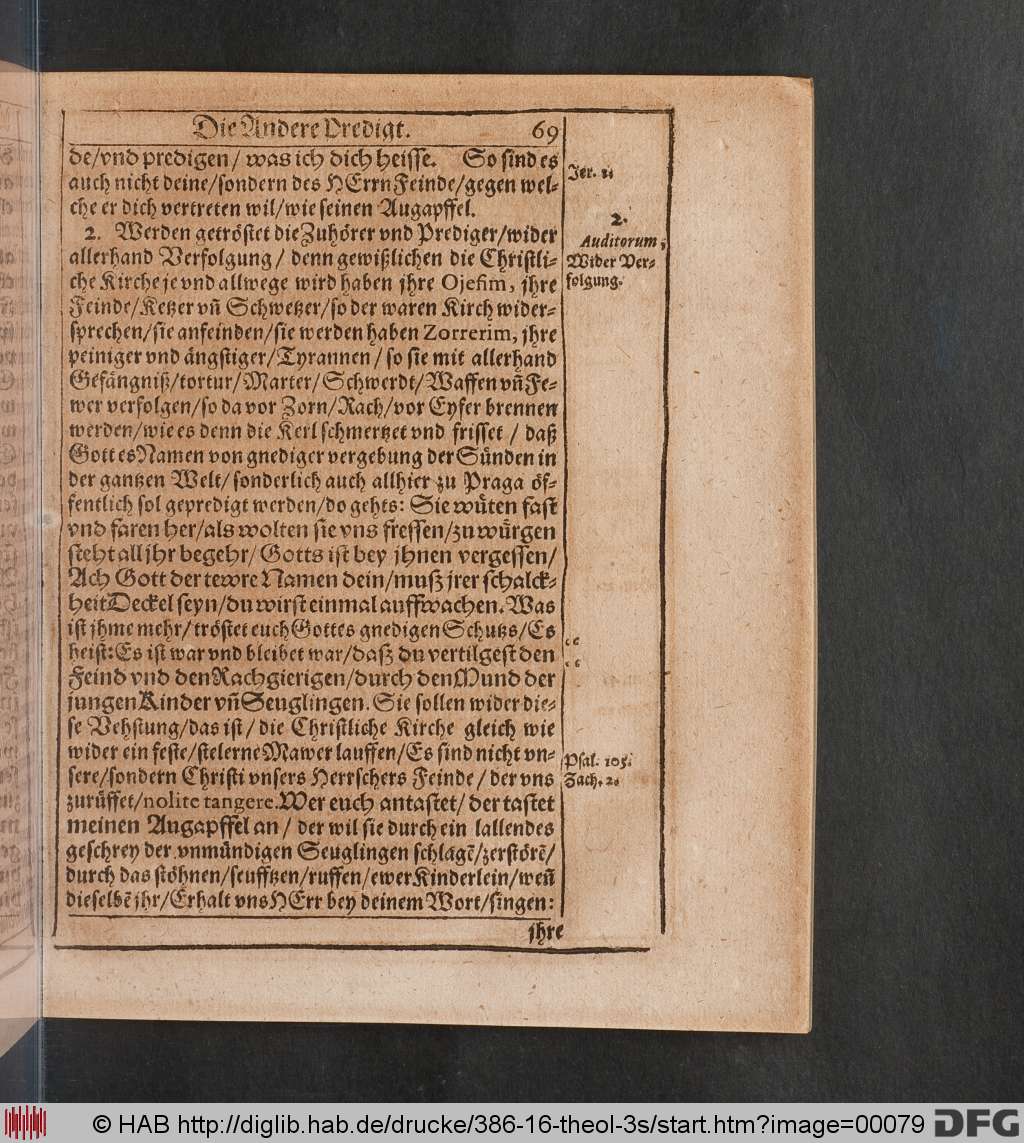 Die Andere Predigt. 69
de/vnd predigen/ was ich dich heisse. So sind es
auch nicht deine/sondern des HErrn Feinde/gegen wel-
che er dich vertreten wil/wie seinen Augapffel.
2. Werden getröstet die Zuhörer vnd Prediger/wider
allerhand Verfolgung/ denn gewißlichen die Christli-
che Kirche je vnd allwege wird haben jhre Ojefim, jhre
Feinde/Ketzer vñ Schwetzer/so der waren Kirch wider-
sprechen/sie anfeinden/sie werden haben Zorrerim, jhre
peiniger vnd ängstiger/Tyrannen/ so sie mit allerhand
Gefängniß/tortur/Marter/Schwerdt/Waffen vñ Fe-
wer verfolgen/so da vor Zorn/Rach/vor Eyfer brennen
werden/wie es denn die Kerl schmertzet vnd frisset / daß
Gottes Namen von gnediger vergebung der Sünden in
der gantzen Welt/ sonderlich auch allhier zu Praga öf-
fentlich sol gepredigt werden/do gehts: Sie wüten fast
vnd faren her/als wolten sie vns fressen/zu würgen
steht all jhr begehr/ Gotts ist bey jhnen vergessen/
Ach Gott der tewre Namen dein/muß jrer schalck-
heit Deckel seyn/du wirst einmal auffwachen. Was
ist jhme mehr/tröstet euch Gottes gnedigen Schutzs/Es
heist: Es ist war vnd bleibet war/daß du vertilgest den
Feind vnd den Rachgierigen/durch den Mund der
jungen Kinder vñ Seuglingen. Sie sollen wider die-
se Vehstung/das ist/ die Christliche Kirche gleich wie
wider ein feste/stelerne Mawer lauffen/Es sind nicht vn-
sere/sondern Christi vnsers Herrschers Feinde/ der vns
zurüffet/nolite tangere. Wer euch antastet/ der tastet
meinen Augapffel an/ der wil sie durch ein lallendes
geschrey der vnmündigen Seuglingen schlagē/zerstörē/
durch das stöhnen/seufftzen/ruffen/ewer Kinderlein/weñ
dieselbē jhr/Erhalt vns HErr bey deinem Wort/singen:
jhre
Jer. 1.
2.
Auditorum;
Wider Ver-
folgung.
Psal. 105.
Zach. 2.
© HAB http://diglib.hab.de/drucke/386-16-theol-3s/start.htm?image=00079 DFG